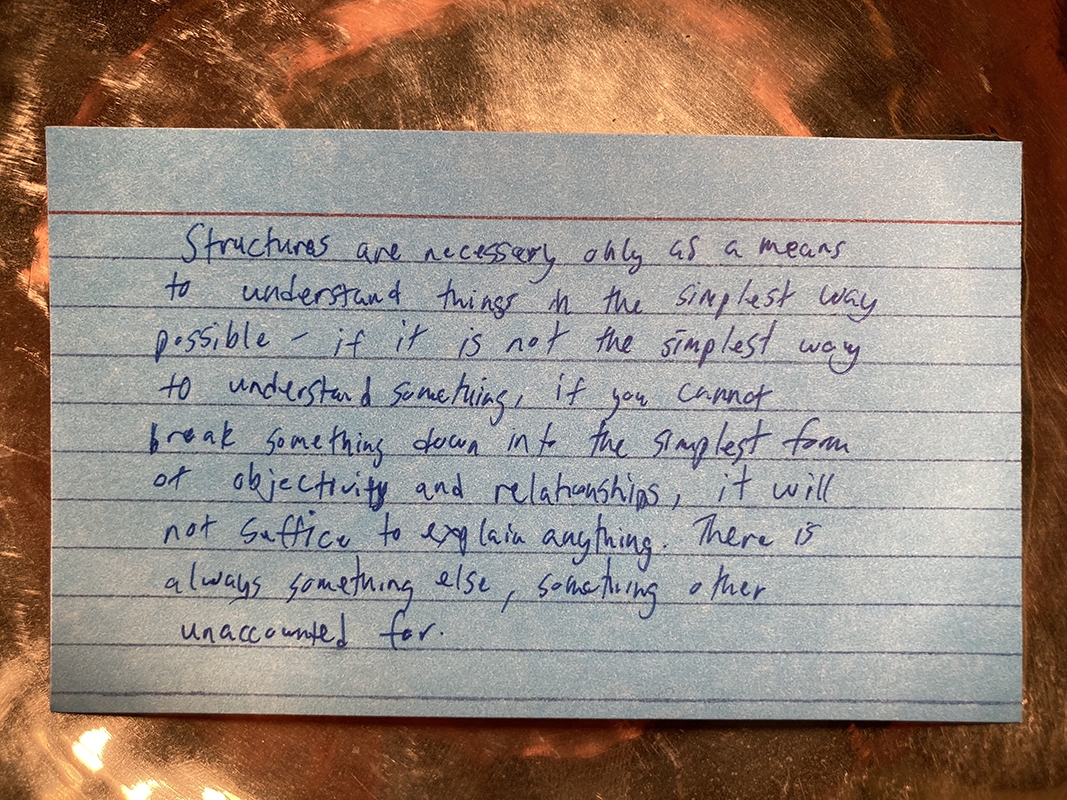 Structures are necessary only as a means
to understand things in the simplest way
possible – if it is not the simplest way
to understand something, if you cannot
break something down into the simplest form
of objectivity and relationships, it will
not suffice to explain anything. There is
always something else, something other
unaccounted for.